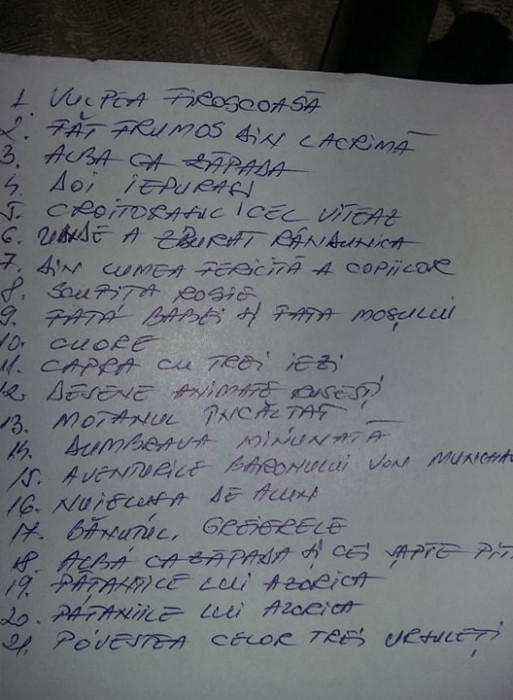 1. VULPEA FIROSCOASĂ
2. FĂT FRUMOS DIN LACRIMĂ
3. ALBA CA ZĂPADA
4. DOI IEPURAȘI
5. CROITORAȘUL CEL VITEAZ
6. UNDE A ZBURAT RÂNDUNICA
7. DIN LUMEA FERICITĂ A COPIILOR
8. SCUFIȚA ROȘIE
9. FATA BABEI ȘI FATA MOȘULUI
10. CUORE
11. CAPRA CU TREI IEZI
12. DESENE ANIMATE RUSEȘTI
13. MOTANUL ÎNCĂLȚAT
14. DUMBRAVA MINUNATĂ
15. AVENTURILE BARONULUI VON MUNCHA
16. NUIELUȘA DE ALUN
17. BĂNUȚUL, GREIERELE
18. ALBĂ CA ZĂPADA ȘI CEI ȘAPTE PIT
19. PATANIILE LUI AZORICA
20. PATANIILE LUI AZORICA
21. POVESTEA CELOR TREI URSULEȚI